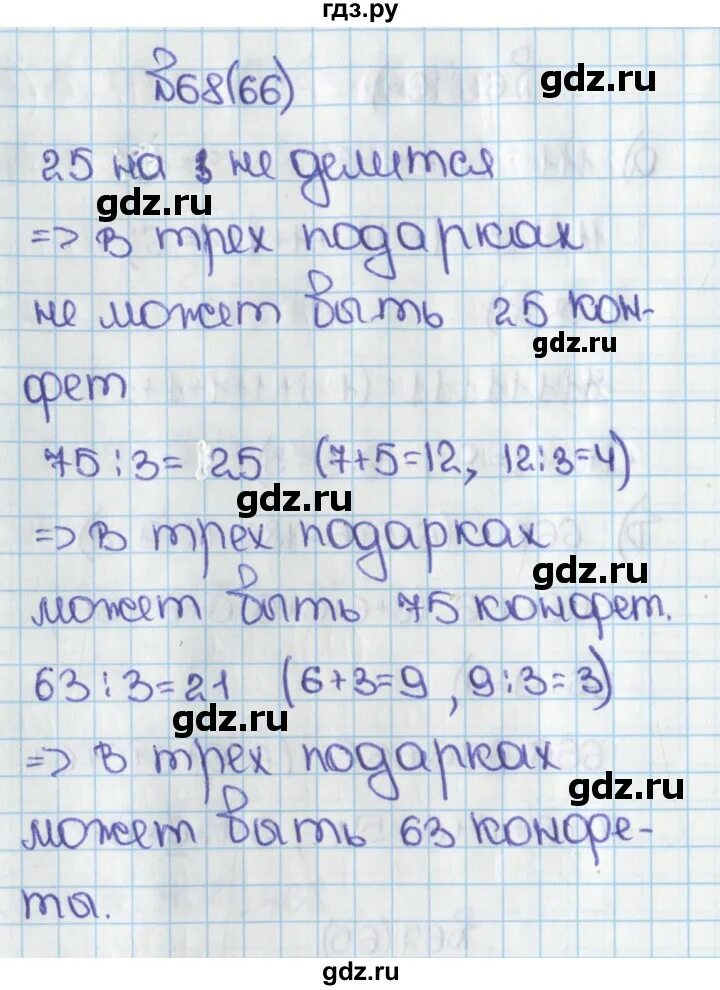 гдз.ру
gdz.ru
№68(66)
25 на 3 не делится
gdz.ru
=> в трех подарках
не может быть 25 кон-
gdz.ru
фет
75 : 3 = 25 (7+5=12, 12:3=4)
gdz.ru
=> в трех подарках
gdz.ru
может быть 75 конфет.
63 : 3 = 21 (6+3=9, 9:3=3)
gdz.ru
=> в трех подарках
gdz.ru
может быть 63 конфе-
ты.
gdz.ru